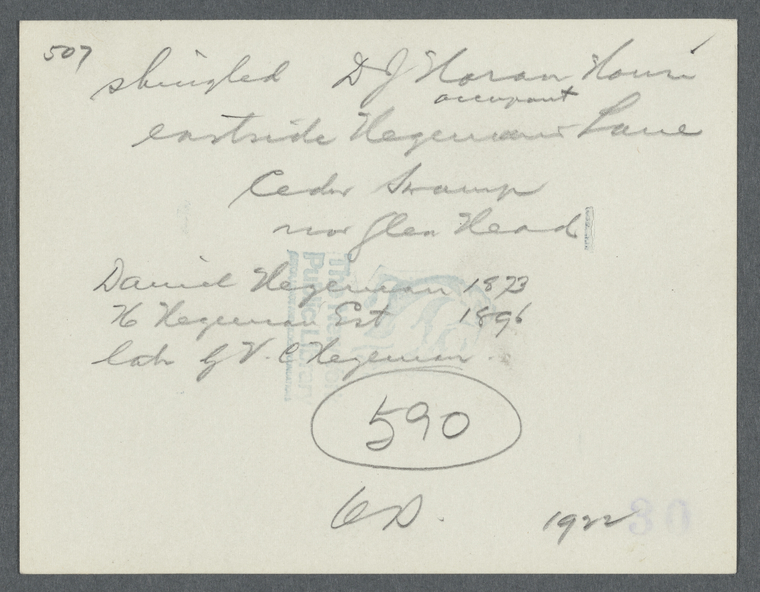 507
shingled D J Horan House
occupant
eastside Hegemans Lane
Cedar Swamp
nr Glen Head
Daniel Hegeman 1873
H Hegeman Est 1896
V. C Hegeman
590
1922
80